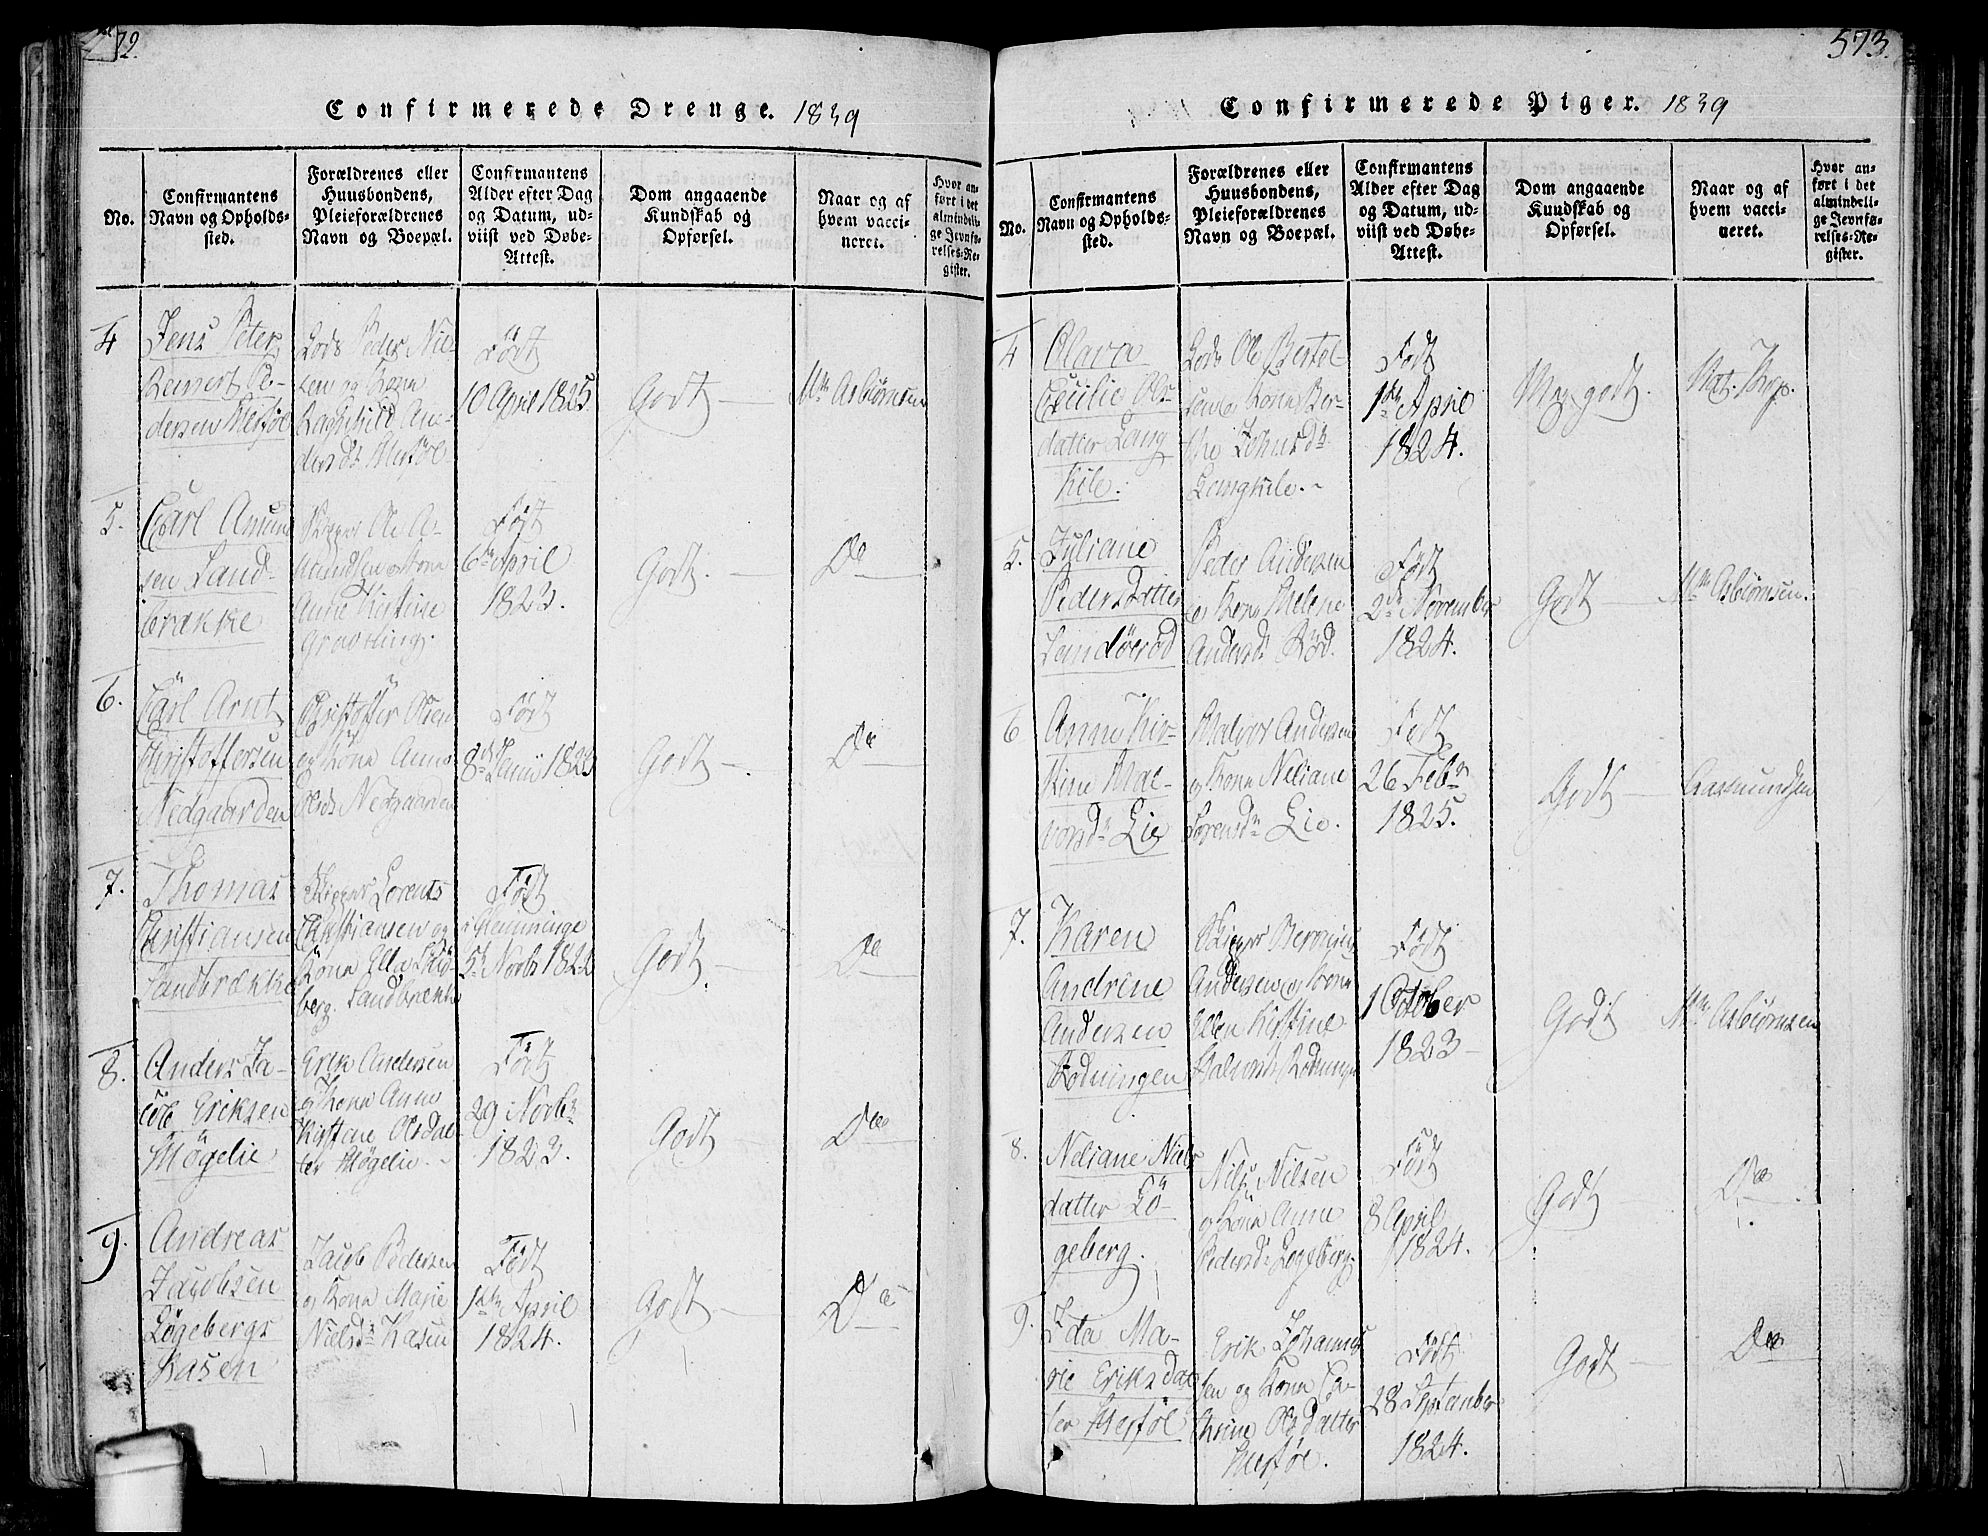 Confirmerede Drenge. 1839
No.
Confirmantens
Navn og Opholds-
sted.
Forældrenes eller
Huusbondens,
Pleieforældrenes
Navn og Boepæl.
Confirmantens
Alder efter Dag
og Datum, ud-
viist ved Døbe-
Attest.
Dom angaaende
Kundskab og
Opførsel.
Naar og af
hvem vacci-
neret.
Hvor an-
ført i det
almindeli-
ge Jevnfø-
relses-Re-
gister.
4
Jens Peter
Reinert Pe-
dersen
Lods Peder Niel-
sen og Kona
Ragnhild An-
dersdr
Født
10 April 1825
Godt
Mr Asbiørnsen
5.
Carl Amun
sen Sand-
brække
Skipper Ole A-
mundsen og Kona
Anne Kirstine
Født
6te April
1823.
Godt.
Do
6.
Carl Arnt
Christoffersen
Nedgaarden
Christoffer Olsen
og Kona Anne
Olsdr Nedgaarden
Født
8de Junii 1823
Godt
Do
7.
Thomas
Christiansen
Sandbrække
Skipper Lorents
Christiansen og
Kona Ella
berg. Sandbrække
Født
5te Novbr 1822
Godt
Do
8.
Anders Ja-
cob Eriksen
Møgelie
Erik Andersen
og Kona Anne
Kirstine Olsdat-
ter Møgelie.
Født
29 Novbr
1823.
Godt
Do
9.
Andreas
Jacobsen
Løgebergs
Kasen
Jacob Pedersen
og Kona Marie
Nielsdr Kasen
Født
1ste April
1824.
Godt
Do
573.
Confirmerede Piger. 1839
No.
Confirmantens
Navn og Opholds-
sted.
Forældrenes eller
Huusbondens,
Pleieforældrenes
Navn og Boepæl.
Confirmantens
Alder efter Dag
og Datum, ud-
viist ved Døbe-
Attest.
Dom angaaende
Kundskab og
Opførsel.
Naar og af
hvem vacci-
neret.
Hvor an-
ført i det
almindeli-
ge Jevnfø-
relses-Re-
gister.
4
Olava
Cecilie Ols-
datter Lang
Kile.
Lods Ole Bertel-
sen og Kona Ber-
the
Langkile.
Født
1ste April
1824.
Meg. godt.
Nat. Kop.
5.
Juliane
Pedersdatter
Sandøerød
Peder Andersen
og Kona
Andersdr Rød.
Født
2de November
1824.
Godt
Mr Asbiørnsen.
6
Anne Kir-
stine Hal-
vorsdr Lie
Halvor Andersen
og Kona Neliane
Sørensdr Lie.
Født
26 Febr
1825.
Godt
Aasmundsen
7.
Karen
Andrine
Andersen
Rødningen
Skipper
Andersen og Kona
Ellen Kirstine
Født
1 October
1823
Godt
Mr Asbiørnsen
8.
Neliane Niels
datter Lø-
geberg.
Nils Nilsen
og Kona Anne
Pedersdr Løgeberg.
Født
8 April
1824.
Godt
Do
9.
Ida Ma-
rie Eriksdat
ter
Erik Johannes
sen og Kona Ca-
thrine Olsdatter
Født
28 September
1824.
Godt
Do